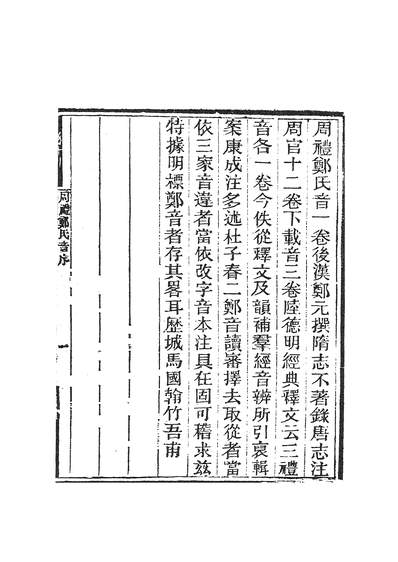 周禮鄭氏音一卷後漢鄭元撰隋志不著錄唐志注
周官十二卷下載音三卷陸德明經典釋文云三禮
音各一卷今佚從釋文及韻補羣經音辨所引裒輯
案康成注多述杜子春二鄭音讀審擇去取從者當
依三家音違者當依改字音本注具在固可稽求兹
特據明標鄭音者存其畧耳歷城馬國翰竹吾甫
周禮鄭氏音序
一